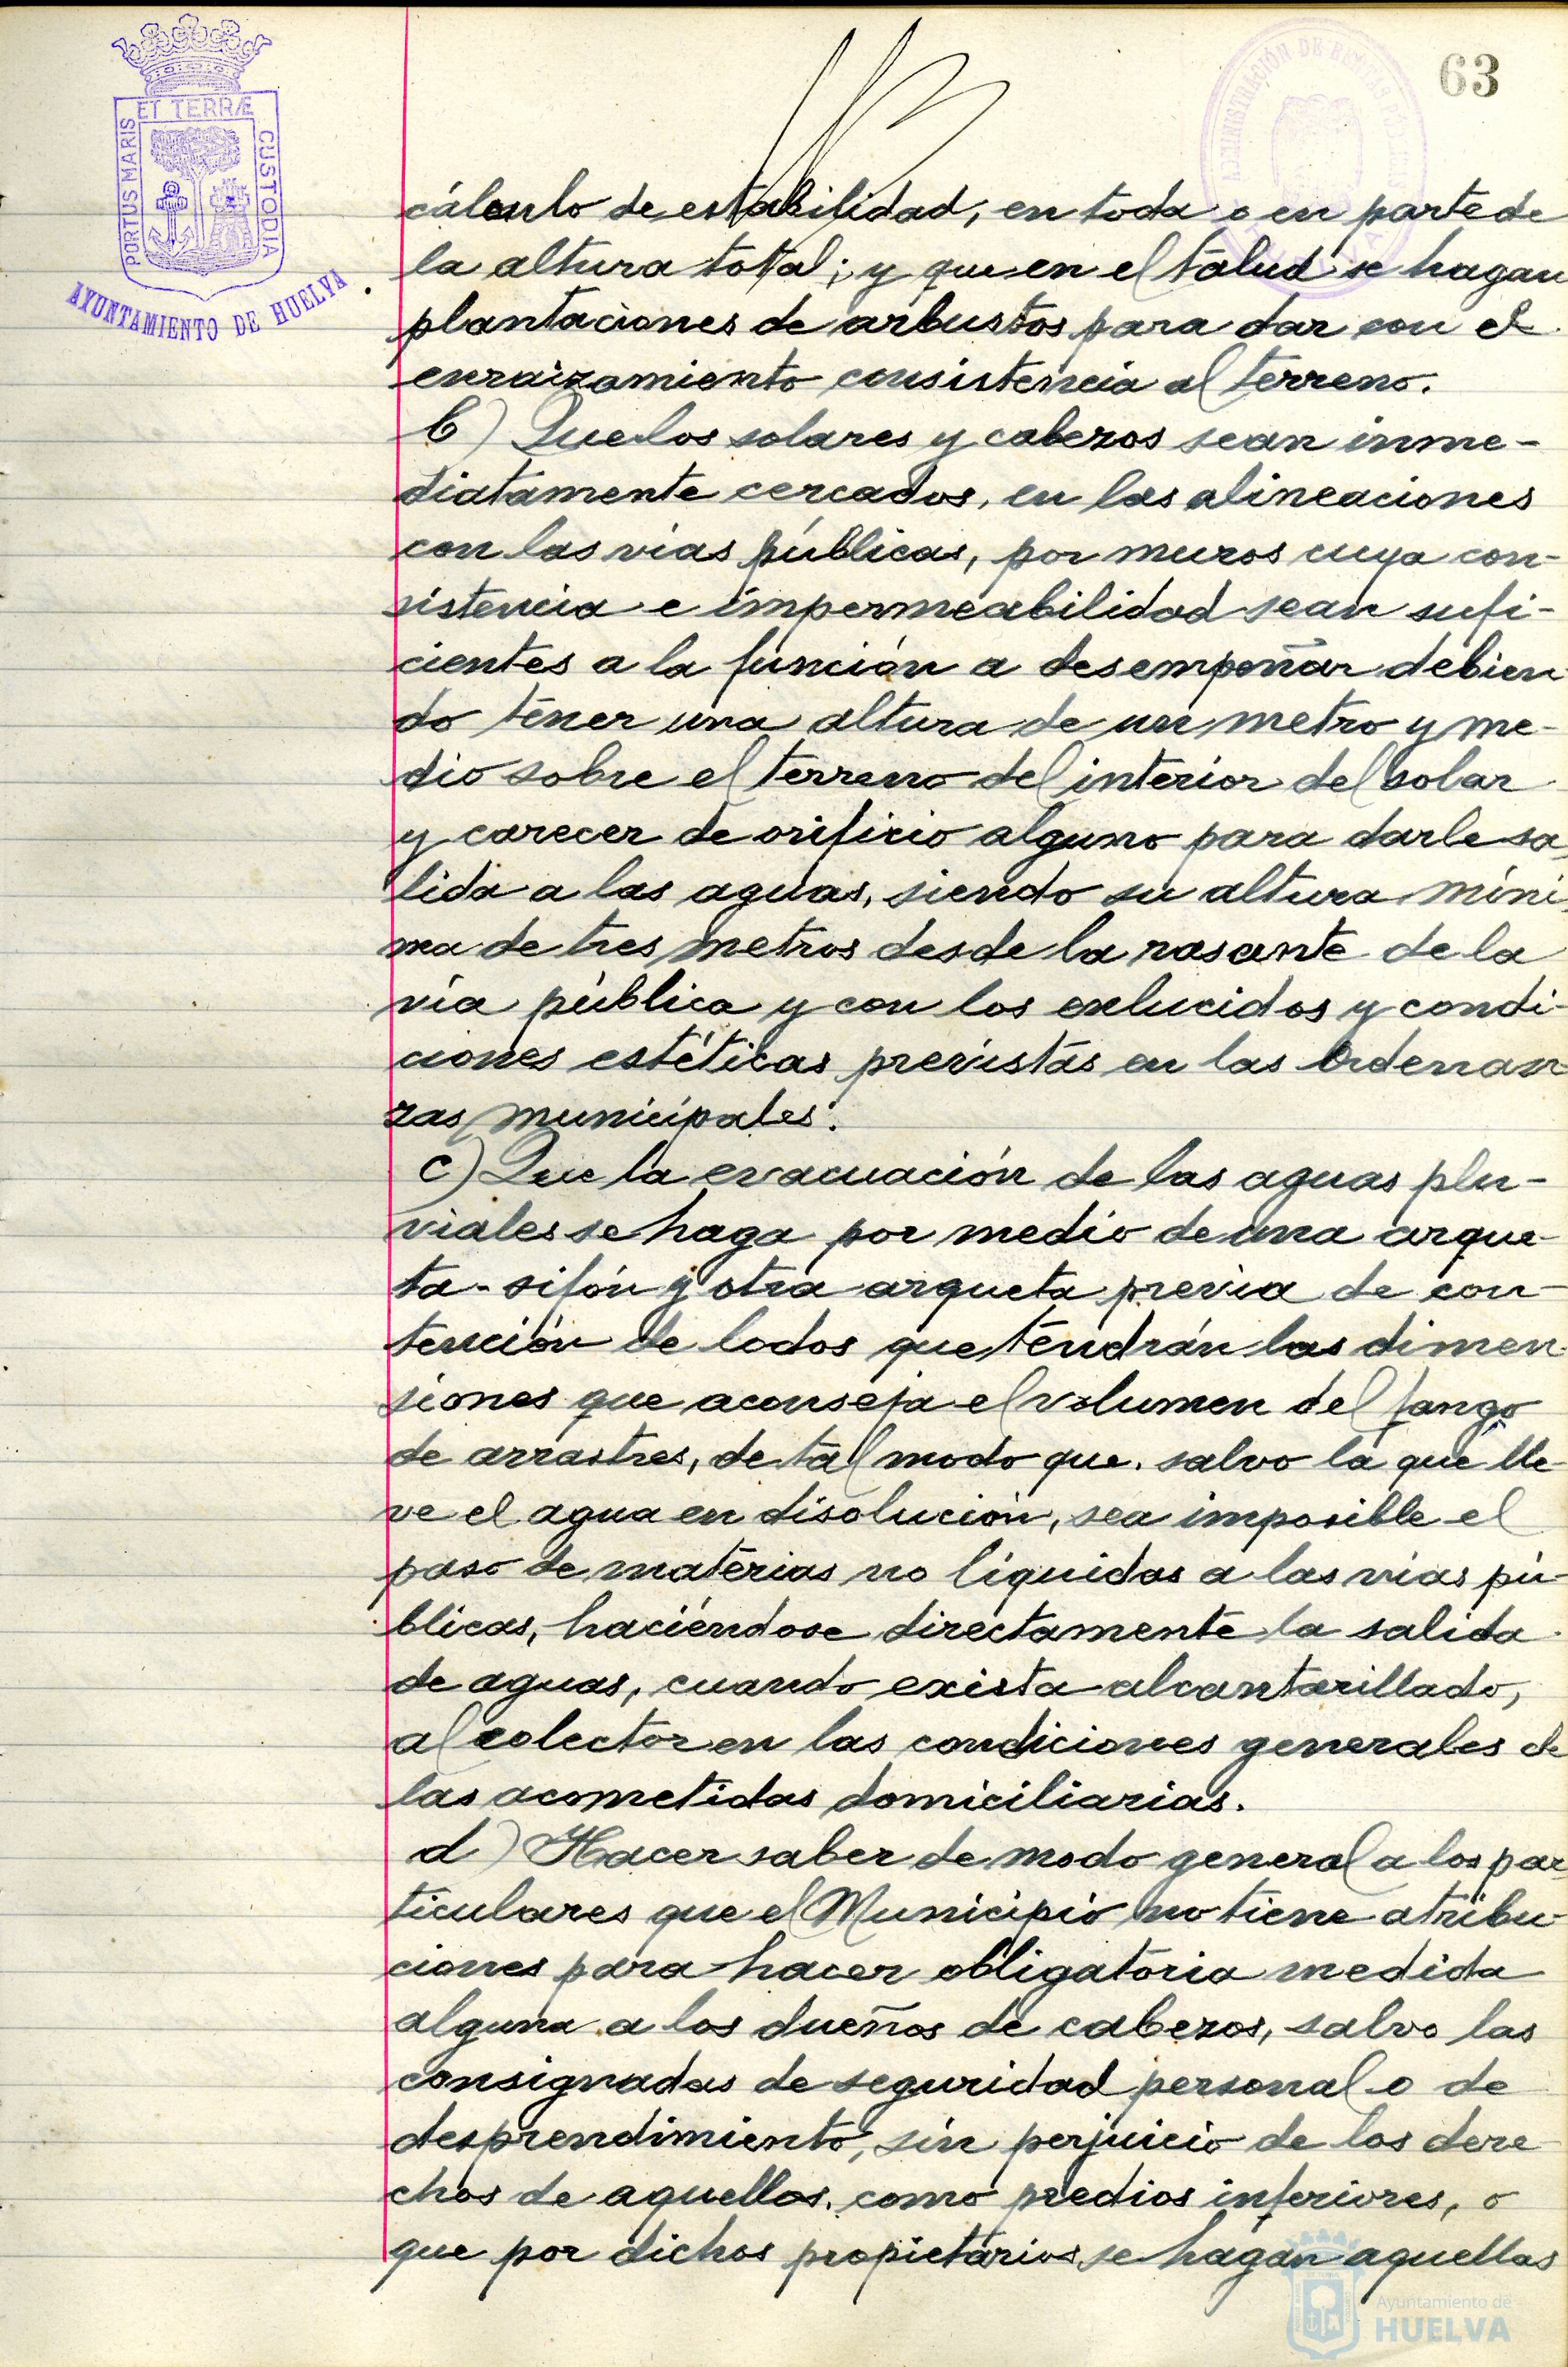 63
ET TERRÆ
PORTUS MARIS
CUSTODIA
AYUNTAMIENTO DE HUELVA
ADMINISTRACIÓN DE RENTAS PÚBLICAS
cálculo de estabilidad, en toda o en parte de
la altura total; y que en el talud se hagan
plantaciones de arbustos para dar con el
enraizamiento consistencia al terreno.
b) Que los solares y cabezos sean inme-
diatamente cercados, en las alineaciones
con las vías públicas, por muros cuya con-
sistencia e impermeabilidad sean sufi-
cientes a la función a desempeñar debien
do tener una altura de un metro y me-
dio sobre el terreno del interior del solar
y carecer de orificio alguno para darle sa
lida a las aguas, siendo su altura míni
ma de tres metros desde la rasante de la
vía pública y con los exlucidos y condi-
ciones estéticas previstas en las Ordenan
zas municipales.
c) Que la evacuación de las aguas plu-
viales se haga por medio de una arque-
ta-sifón y otra arqueta previa de con-
tención de lodos que tendrán las dimen
siones que aconseja el volumen del fango
de arrastres, de tal modo que, salvo la que lle
ve el agua en disolución, sea imposible el
paso de materias no líquidas a las vías pú-
blicas, haciéndose directamente la salida
de aguas, cuando exista alcantarillado,
al colector en las condiciones generales de
las acometidas domiciliarias.
d) Hacer saber de modo general a los par
ticulares que el Municipio no tiene atribu-
ciones para hacer obligatoria medida
alguna a los dueños de cabezos, salvo las
consignadas de seguridad personal o de
desprendimiento, sin perjuicio de los dere
chos de aquellos, como predios inferiores, o
que por dichos propietarios se hagan aquellas
Ayuntamiento de
HUELVA